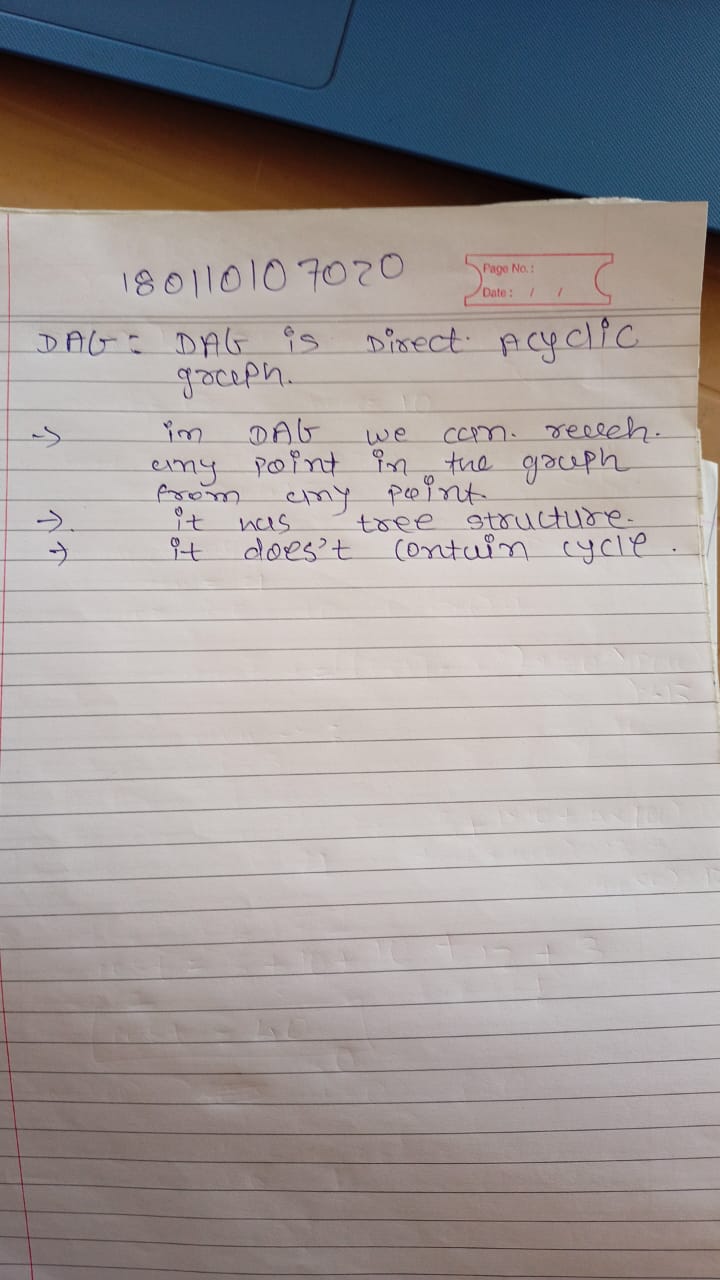 180110107020
Page No.:
Date: / /
DAG = DAG is Direct Acyclic
graph.
→ in DAG we can reach.
any point in the graph
from any point
→. it has tree structure.
→ it does't contain cycle.